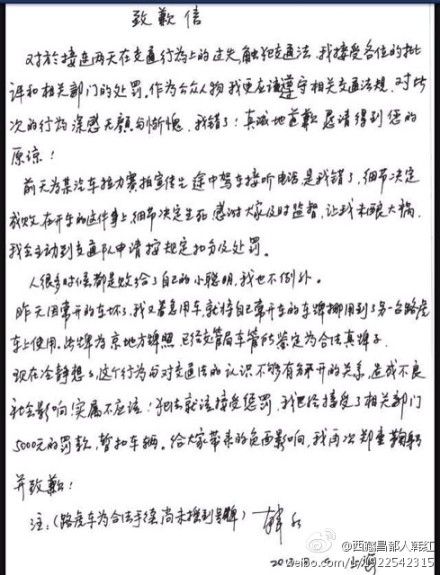 致歉信
对於接连两天在交通行为上的过失,触犯交通法,我接受各位的批
评和相关部门的处罚。作为公众人物我更应该遵守相关交通法规,对此
次的行为深感无颜与惭愧,我错了!真诚地道歉恳请得到您的
原谅!
前天为某汽车拉力赛拍宣传片途中驾车接听电话是我错了,细节决定
成败,在开车的这件事上,细节决定生死,感谢大家及时监督,让我未酿大祸,
我会主动到交通队申请按规定扣分及处罚。
人很多时候都是败给了自己的小聪明,我也不例外。
昨天因常开的车坏了,我又着急用车,就将自己常开车的车牌挪用到了另一台路虎
车上使用。此牌为京地方牌照,已经交管局车管所鉴定为合法真牌子。
现在冷静想了,这个行为与对交通法的认识不够有分不开的关系,造成不良
社会影响,实属不应该!犯法就该接受惩罚,我已经接受了相关部门
5000元的罚款,暂扣车辆。给大家带来的负面影响,我再次郑重鞠躬
并致歉!
注:(路虎车为合法手续尚未接到号牌) 韩红
@西藏昌都人韩红